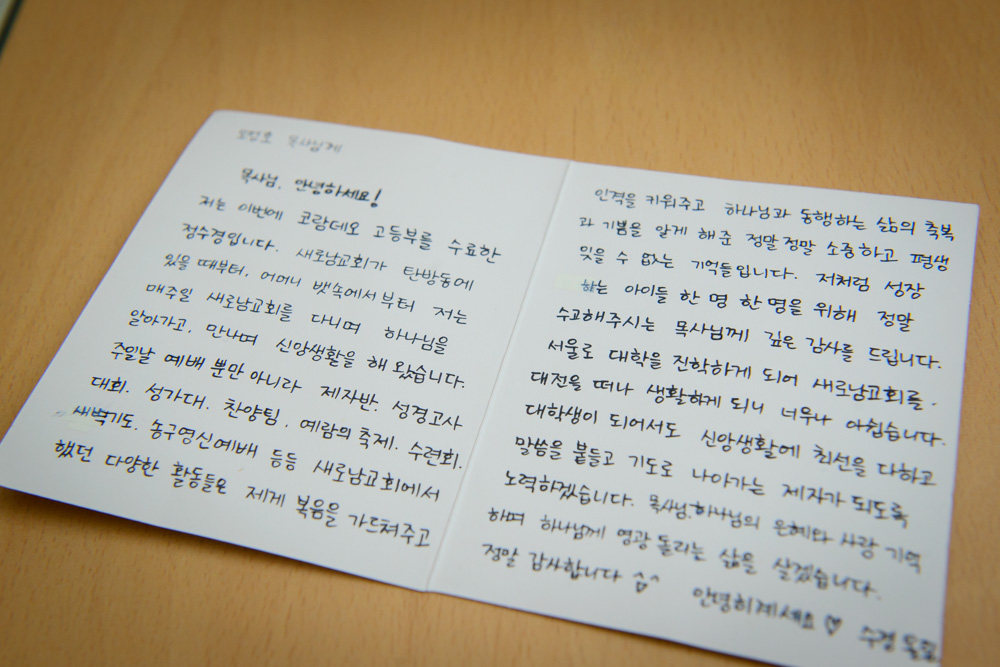 오정호 목사님께
목사님, 안녕하세요!
저는 이번에 코람데오 고등부를 수료한
정수경입니다. 새로남교회가 탄방동에
있을 때부터, 어머니 뱃속에서부터 저는
매주일 새로남교회를 다니며 하나님을
알아가고, 만나며 신앙생활을 해 왔습니다.
주일날 예배 뿐만 아니라 제자반, 성경고사
대회, 성가대, 찬양팀, 예람의 축제, 수련회,
새벽기도, 농구영신예배 등등 새로남교회에서
했던 다양한 활동들은 제게 복음을 가르쳐주고
인격을 키워주고 하나님과 동행하는 삶의 축복
과 기쁨을 알게 해준 정말정말 소중하고 평생
잊을 수 없는 기억들입니다. 저처럼 성장
하는 아이들 한 명 한 명을 위해 정말
수고해주시는 목사님께 깊은 감사를 드립니다.
서울로 대학을 진학하게 되어 새로남교회를,
대전을 떠나 생활하게 되니 너무나 아쉽습니다.
대학생이 되어서도 신앙생활에 최선을 다하고
말씀을 붙들고 기도로 나아가는 제자가 되도록
노력하겠습니다. 목사님, 하나님의 은혜와 사랑 기억
하며 하나님께 영광 돌리는 삶을 살겠습니다.
정말 감사합니다 ^^
안녕히계세요 ♡ 수경 올림